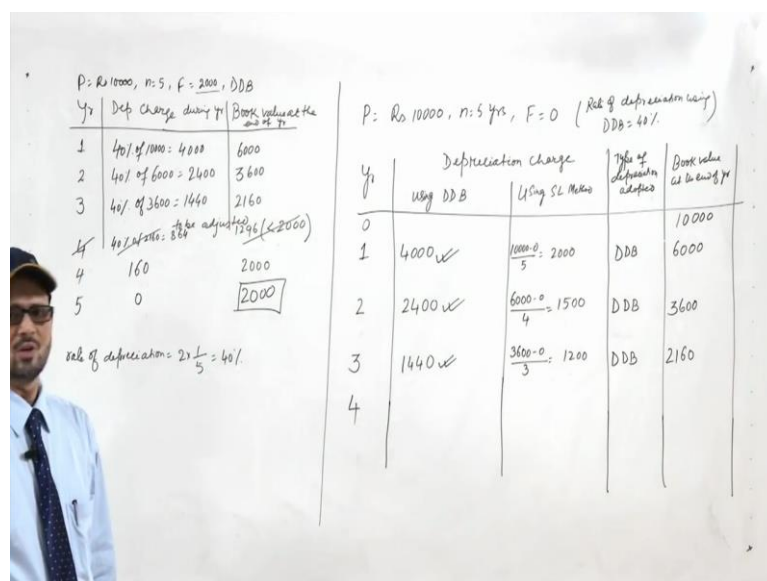 P: Rs 10000, n=5, F = 2000, DDB
Yr Dep Charge during yr Book value at the end of yr
1 40% of 10000 = 4000 6000
2 40% of 6000 = 2400 3600
3 40% of 3600 = 1440 2160
4 40% of 2160 = 864 to be adjusted 1296 (<2000)
4 160 2000
5 0 2000
rate of depreciation = 2x1/5 = 40%.
P: Rs 10000, n=5 yrs, F=0 (Rate of depreciation using DDB = 40%.)
Yr Depreciation Charge Type of depreciation adopted Book value at the end of yr
using DDB Using SL Method
0 10000
1 4000 ✓ 10000-0/5 = 2000 DDB 6000
2 2400 ✓ 6000-0/4 = 1500 DDB 3600
3 1440 ✓ 3600-0/3 = 1200 DDB 2160
4